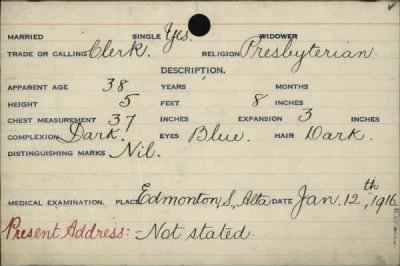 MARRIED SINGLE Yes. WIDOWER
TRADE OR CALLING Clerk. RELIGION Presbyterian.
DESCRIPTION.
APPARENT AGE 38 YEARS MONTHS
HEIGHT 5 FEET 8 INCHES
CHEST MEASUREMENT 37 INCHES EXPANSION 3 INCHES
COMPLEXION Dark. EYES Blue. HAIR Dark.
DISTINGUISHING MARKS Nil.
MEDICAL EXAMINATION. PLACE Edmonton, S, Alta DATE Jan. 12,th 1916.
Present Address: Not stated.